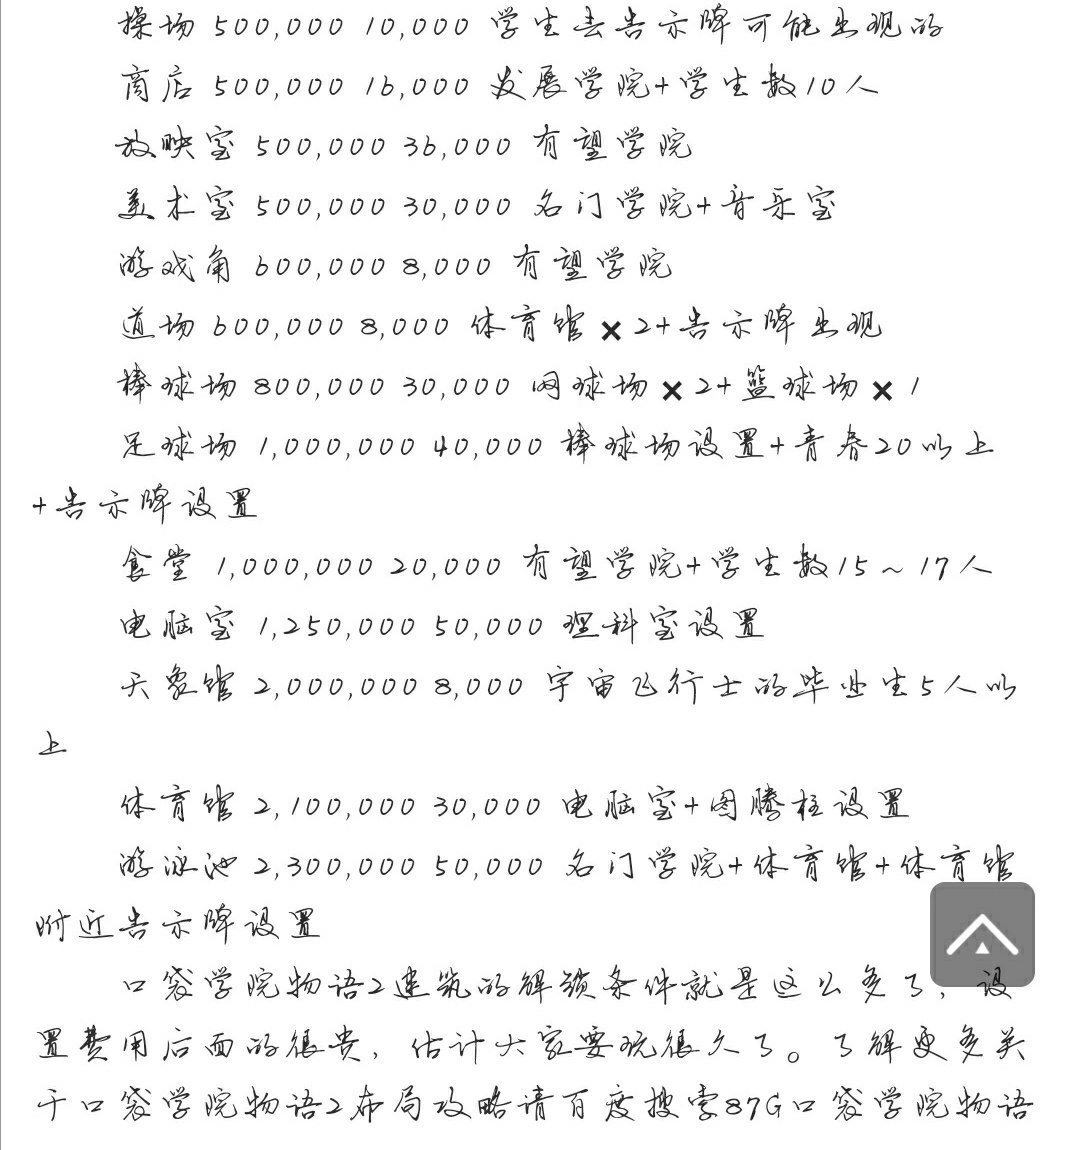 操场 500,000 10,000 学生去告示牌可能出现的
商店 500,000 16,000 发展学院+学生数10人
放映室 500,000 36,000 有望学院
美术室 500,000 30,000 名门学院+音乐室
游戏角 600,000 8,000 有望学院
道场 600,000 8,000 体育馆×2+告示牌出现
棒球场 800,000 30,000 网球场×2+篮球场×1
足球场 1,000,000 40,000 棒球场设置+青春20以上
+告示牌设置
食堂 1,000,000 20,000 有望学院+学生数15~17人
电脑室 1,250,000 50,000 理科室设置
天象馆 2,000,000 8,000 宇宙飞行士的毕业生5人以
上
体育馆 2,100,000 30,000 电脑室+图腾柱设置
游泳池 2,300,000 50,000 名门学院+体育馆+体育馆
附近告示牌设置
口袋学院物语2建筑的解锁条件就是这么多了，设
置费用后面的很贵，估计大家要玩很久了。了解更多关
于口袋学院物语2布局攻略请百度搜索87G口袋学院物语